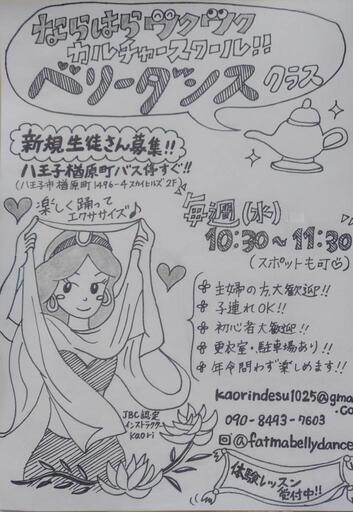 ならはらヅクヅク
カルチャースクール!!
ベリーダンス クラス
新規生徒さん募集!!
八王子楢原町バス停すぐ!!
(八王子市楢原町1496-4 スカイヒルズ 2F)
楽しく踊って
エクササイズ♪
毎週(水)
10:30〜11:30
(スポットも可♡)
主婦の方大歓迎!!
子連れOK!!
初心者大歓迎!!
更衣室・駐車場あり!!
年令問わず楽しめます!!
kaorindesu1025@gma
.co
090-8493-7603
@fatmabellydance
JBC認定
インストラクター
kaori
体験レッスン
受付中!!